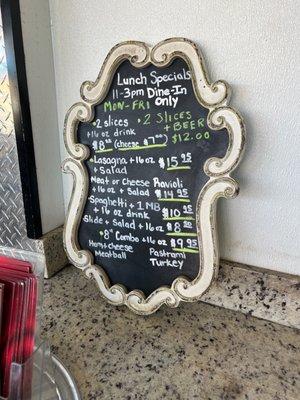 Lunch Specials
11-3pm Dine-In
MON-FRI Only
• 2 slices
+ 16 oz drink
$8.50 (cheese $7.99)
• 2 SLICES
+ BEER
$12.00
Lasagna + 16 oz $15.95
+ Salad
Meat or Cheese Ravioli
+ 16 oz + Salad $14.95
Spaghetti + 1 MB
+ 16 oz drink $10.95
Slide + Salad + 16 oz $8.50
• 8" Combo + 16 oz $9.95
Ham + cheese Pastrami
Meatball Turkey